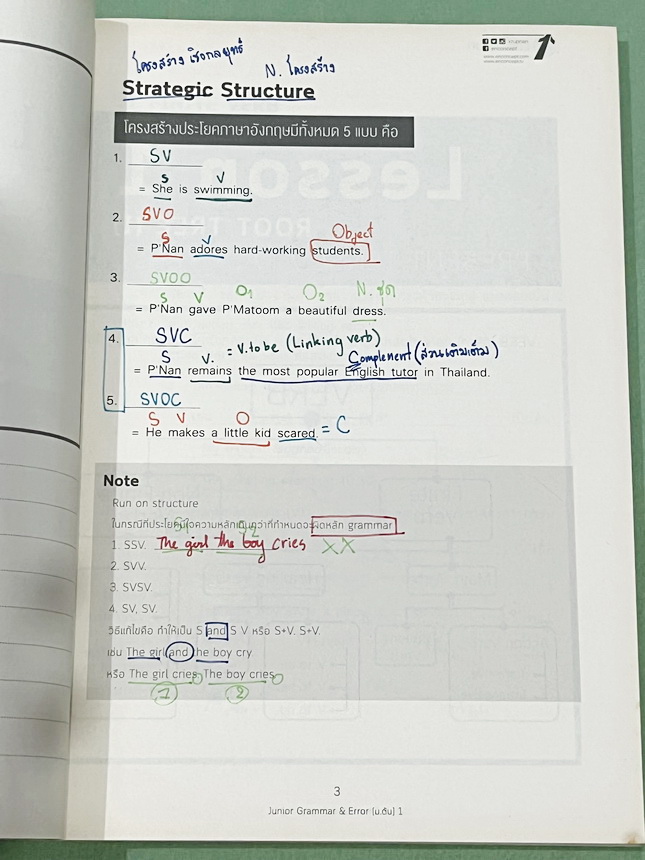 โครงสร้าง เชิงกลยุทธ์
N. โครงสร้าง
Strategic Structure
www.enconcept.com
โครงสร้างประโยคภาษาอังกฤษมีทั้งหมด 5 แบบ คือ
1. SV
S V
= She is swimming.
2. SVO
S V Object
= P'Nan adores hard-working students.
3. SVOO
S V O1 O2 N. ชุด
= P'Nan gave P'Matoom a beautiful dress.
4. SVC
S V. = V. to be (Linking verb)
Complement (ส่วนเติมเต็ม)
= P'Nan remains the most popular English tutor in Thailand.
5. SVOC
S V O
= He makes a little kid scared. = C
Note
Run on structure
ในกรณีที่ประโยคมีใจความหลักเกินกว่าที่กำหนดจะผิดหลัก grammar
S1 S2
1. SSV. The girl the boy cries XX
2. SVV.
3. SVSV.
4. SV, SV.
วิธีแก้ไขคือ ทำให้เป็น S and S V หรือ S+V. S+V.
เช่น The girl and the boy cry.
หรือ The girl cries. The boy cries.
1 2
3
Junior Grammar & Error (ม.ต้น) 1